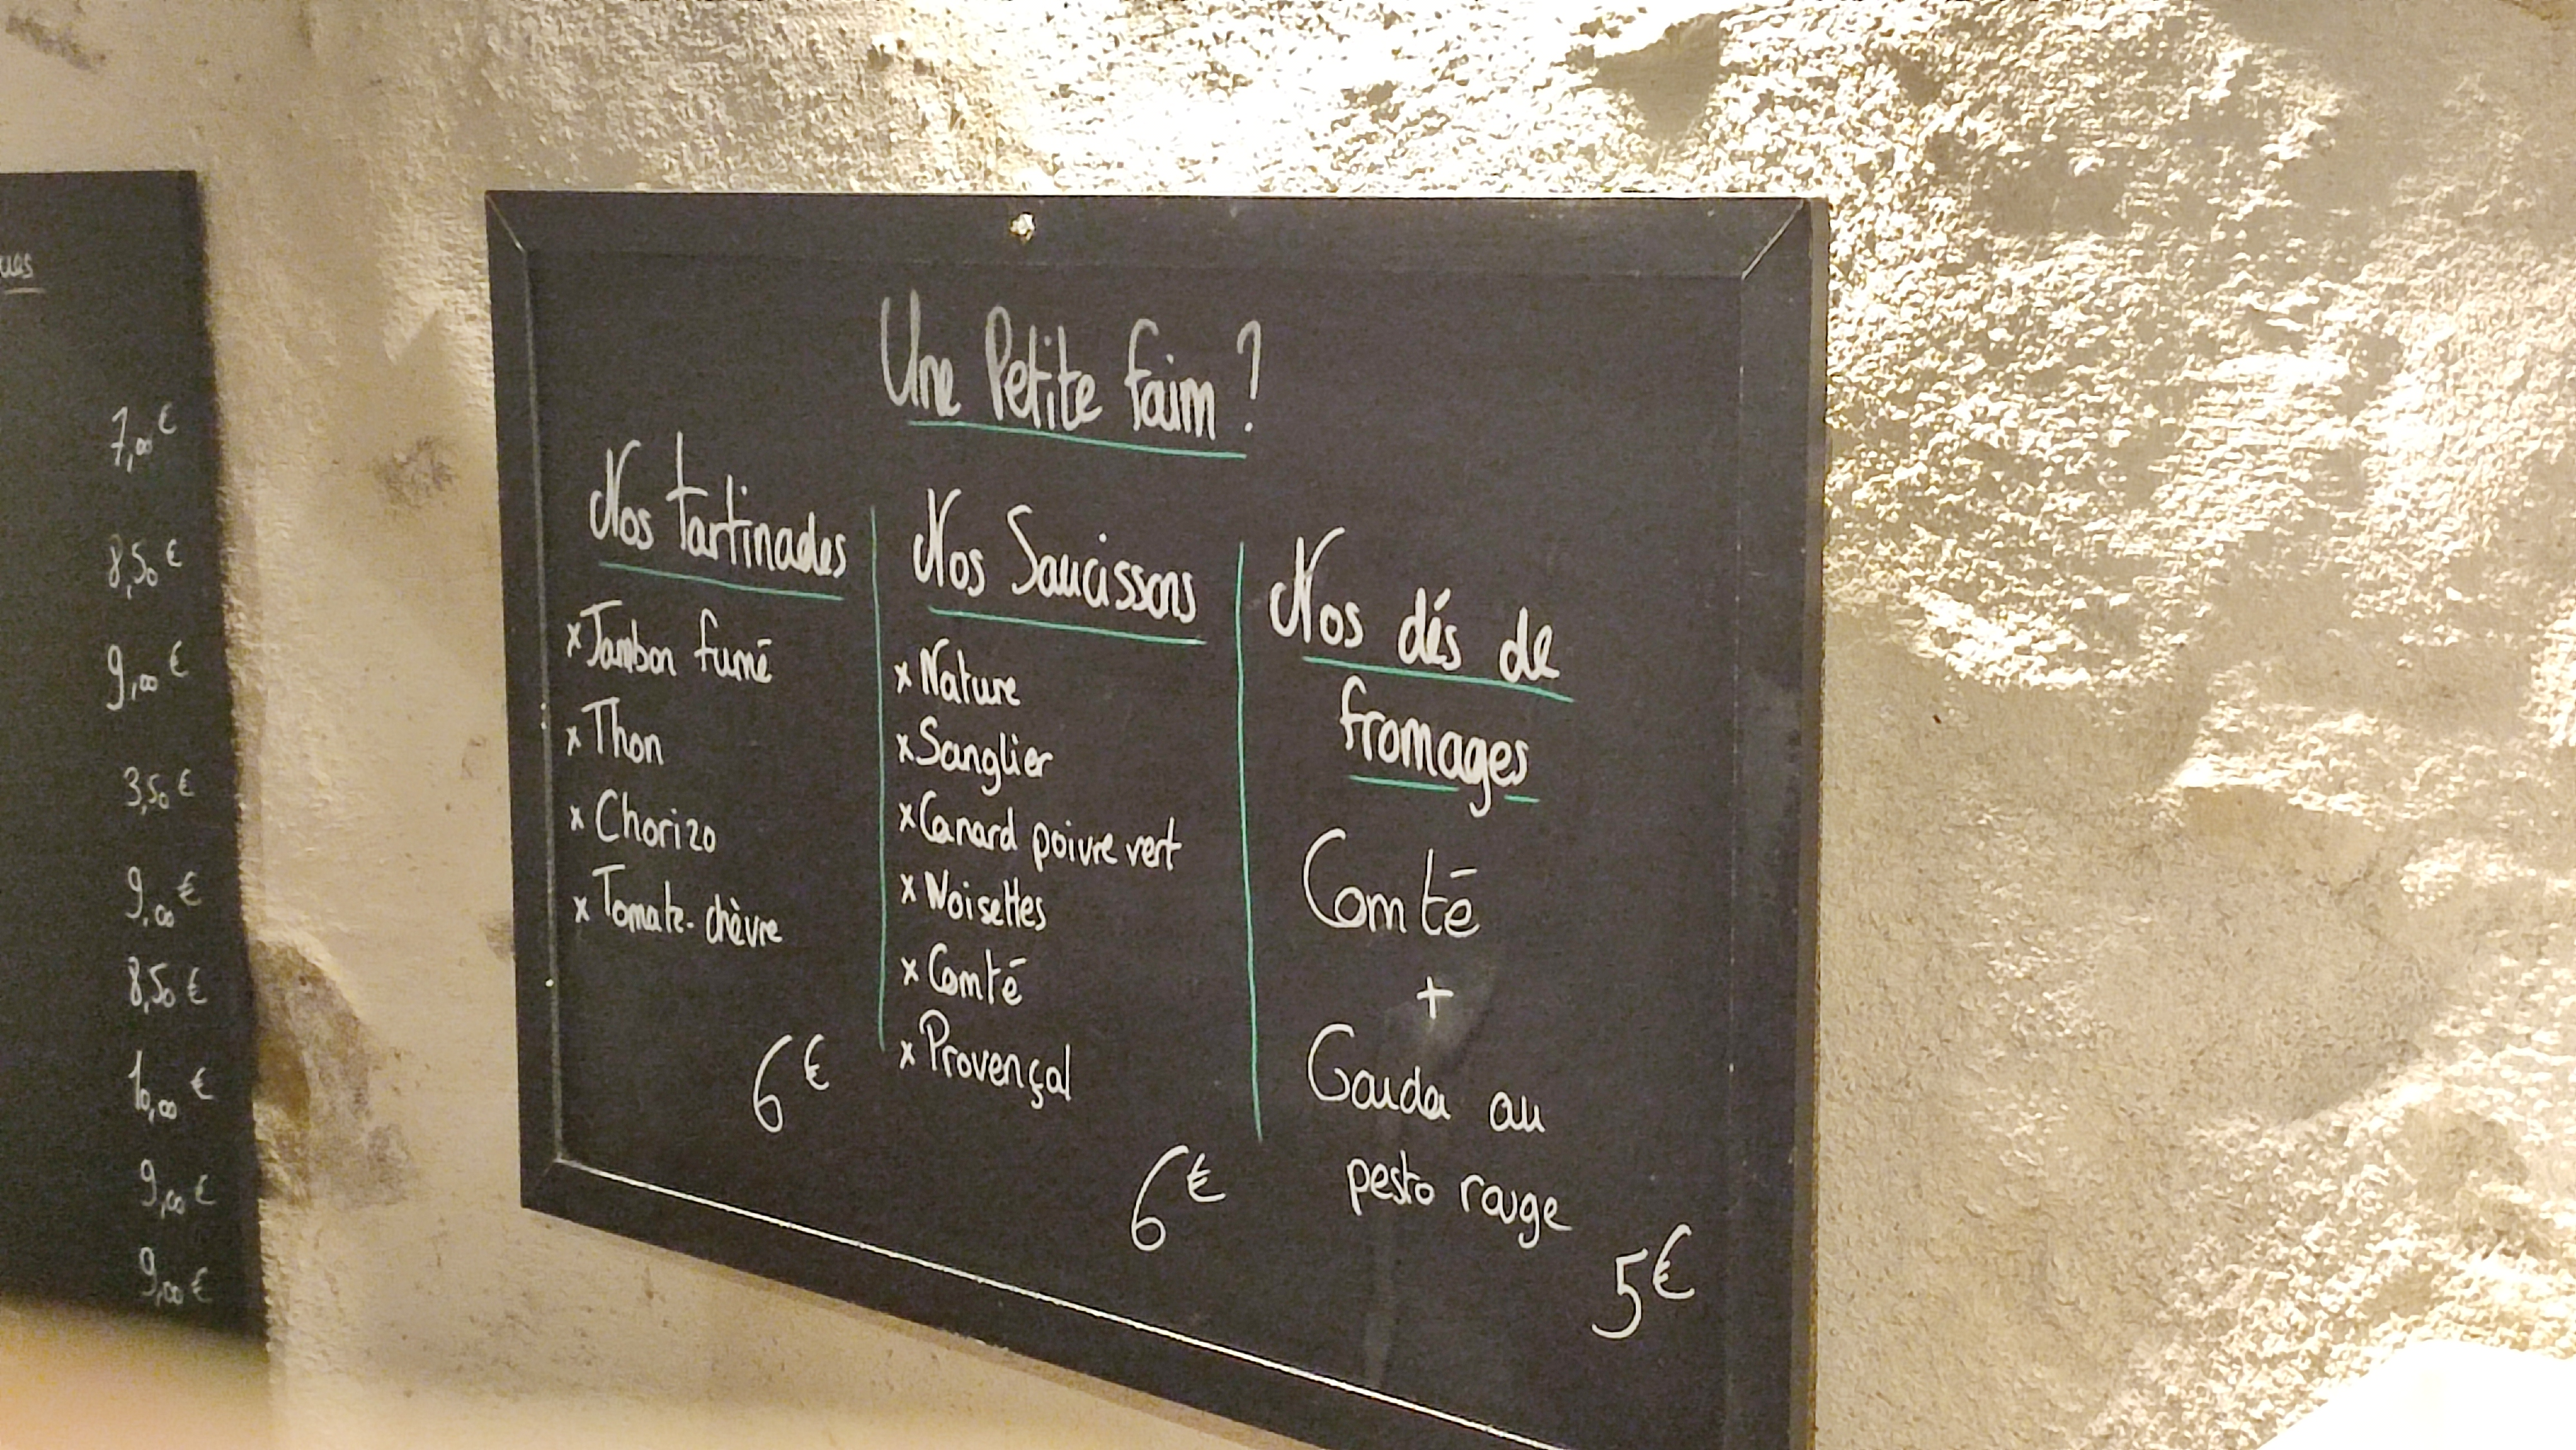 ues
7,00 €
8,50 €
9,00 €
3,50 €
9,00 €
8,50 €
10,00 €
9,00 €
9,00 €
Une Petite faim ?
Nos Tartinades
x Jambon fumé
x Thon
x Chorizo
x Tomate-chèvre
6 €
Nos Saucissons
x Nature
x Sanglier
x Canard poivre vert
x Noisettes
x Comté
x Provençal
6 €
Nos dés de
fromages
Comté
+
Gouda au
pesto rouge
5 €